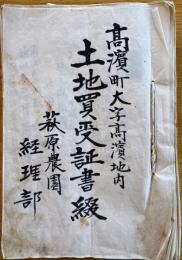 高濱町大字高濱地内
土地買受証書綴
萩原農園
経理部